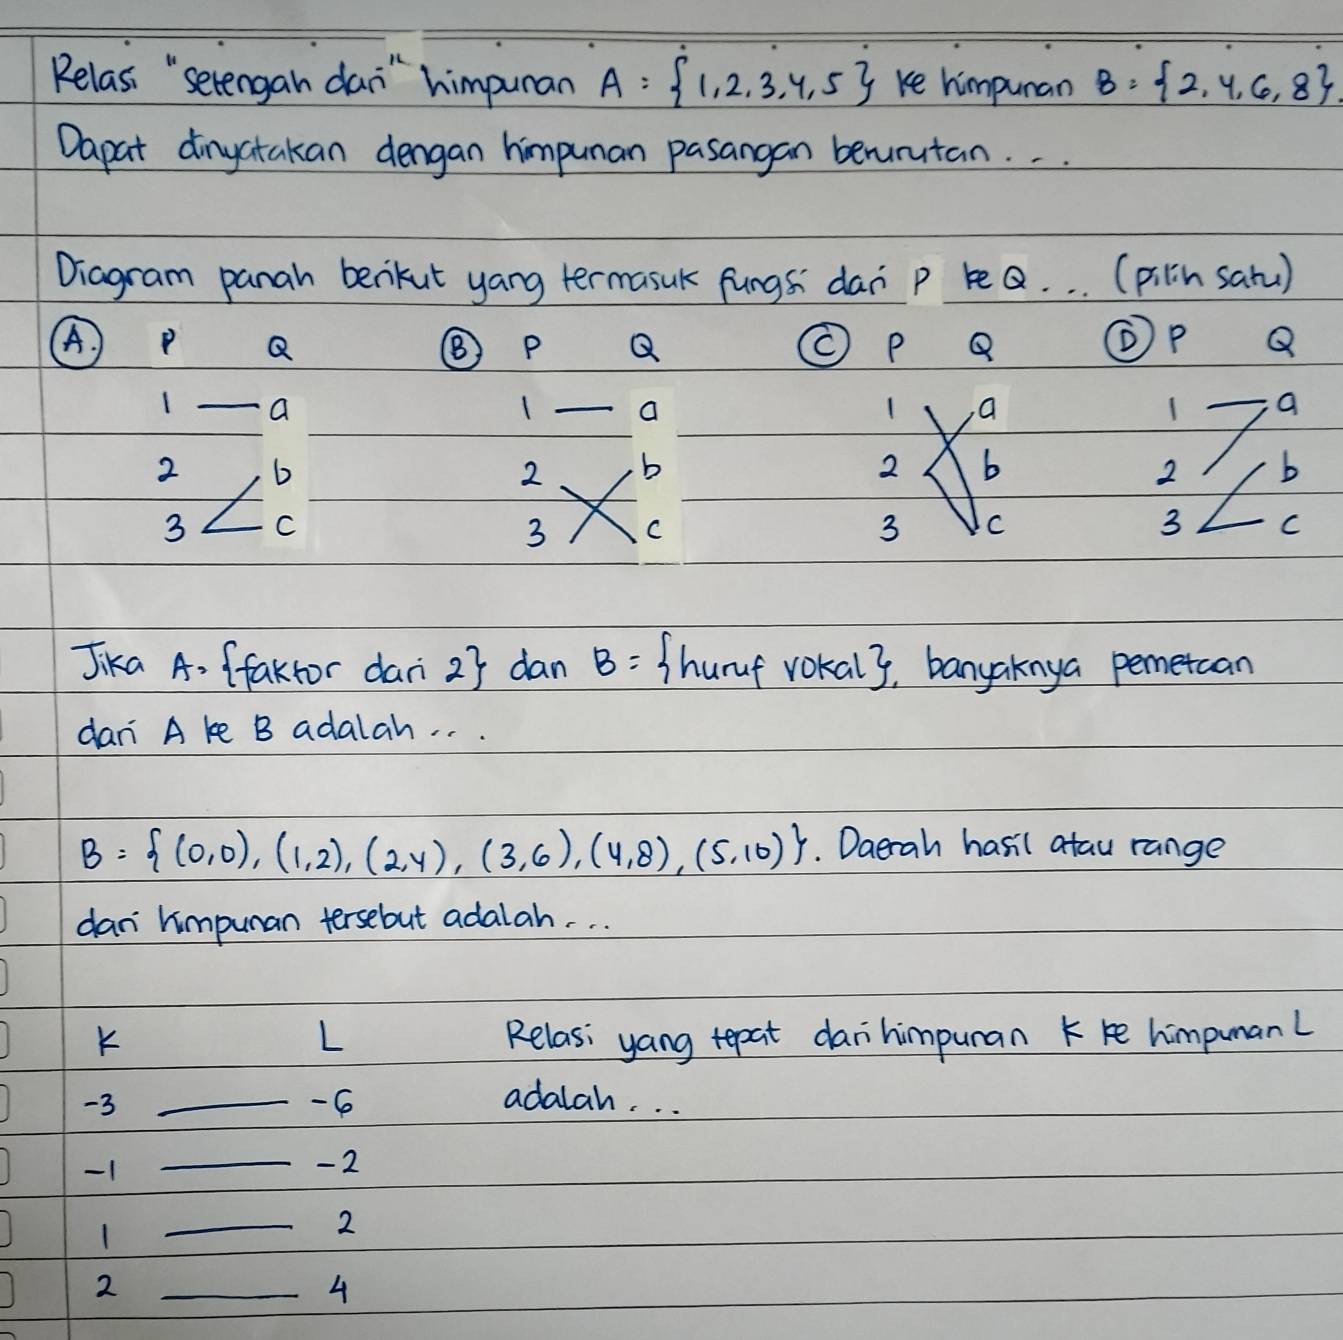 Relasi "setengah dari" himpunan A = {1,2,3,4,5} ke himpunan B = {2,4,6,8}.
Dapat dinyatakan dengan himpunan pasangan berurutan...
Diagram panah berikut yang termasuk fungsi dari P ke Q... (pilih satu)
A. P Q B P Q C P Q D P Q
1 — a 1 — a 1 a 1 — a
2 b 2 b 2 b 2 b
3 c 3 c 3 c 3 c
Jika A = {faktor dari 2} dan B = {huruf vokal}, banyaknya pemetaan
dari A ke B adalah...
B = {(0,0), (1,2), (2,4), (3,6), (4,8), (5,10)}. Daerah hasil atau range
dari himpunan tersebut adalah...
K L Relasi yang tepat dari himpunan K ke himpunan L
-3 — -6 adalah...
-1 — -2
1 — 2
2 — 4